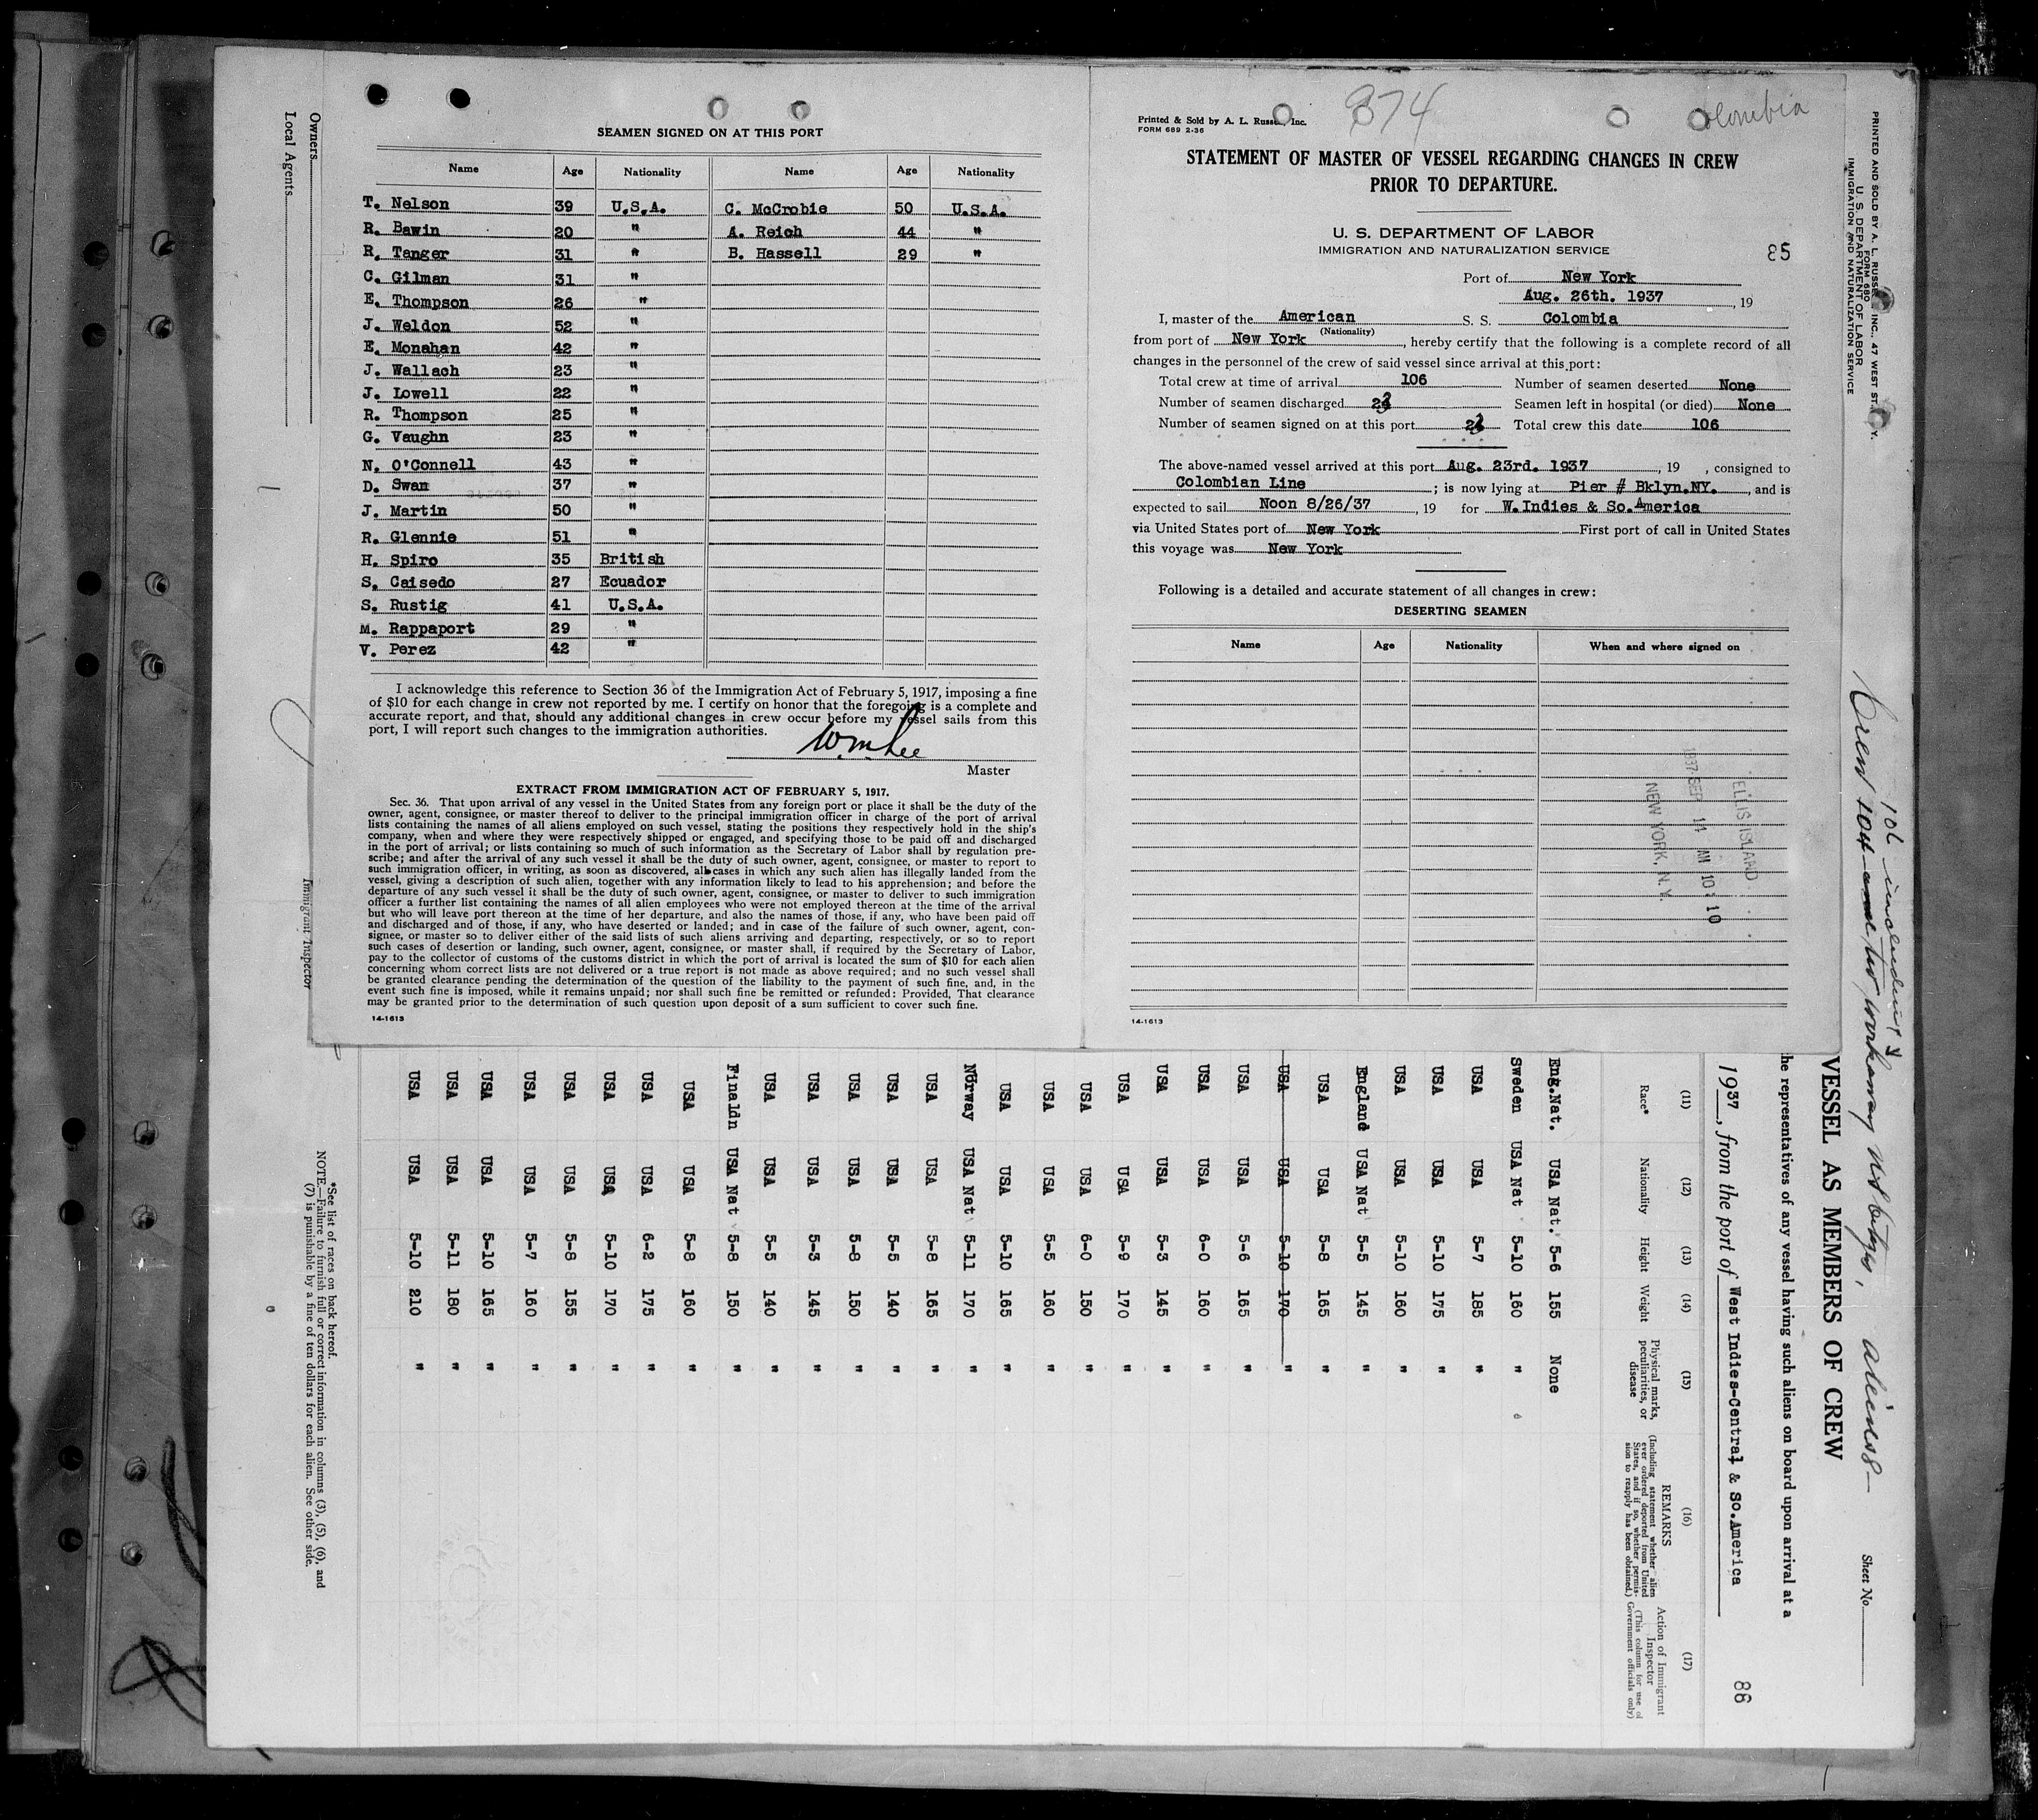 SEAMEN SIGNED ON AT THIS PORT
Name Age Nationality Name Age Nationality
T. Nelson 39 U.S.A. C. McCrobie 50 U.S.A.
R. Bawin 20 " A. Reich 44 "
R. Tanger 31 " B. Hassell 29 "
C. Gilman 31 "
E. Thompson 26 "
J. Weldon 52 "
E. Monahan 42 "
J. Wallach 23 "
J. Lowell 22 "
R. Thompson 25 "
G. Vaughn 23 "
N. O'Connell 43 "
D. Swan 37 "
J. Martin 50 "
R. Glennie 51 "
H. Spiro 35 British
S. Caisedo 27 Ecuador
S. Rustig 41 U.S.A.
M. Rappaport 29 "
V. Perez 42 "
I acknowledge this reference to Section 36 of the Immigration Act of February 5, 1917, imposing a fine
of $10 for each change in crew not reported by me. I certify on honor that the foregoing is a complete and
accurate report, and that, should any additional changes in crew occur before my vessel sails from this
port, I will report such changes to the immigration authorities.
Master
EXTRACT FROM IMMIGRATION ACT OF FEBRUARY 5, 1917.
Sec. 36. That upon arrival of any vessel in the United States from any foreign port or place it shall be the duty of the
owner, agent, consignee, or master thereof to deliver to the principal immigration officer in charge of the port of arrival
lists containing the names of all aliens employed on such vessel, stating the positions they respectively hold in the ship's
company, when and where they were respectively shipped or engaged, and specifying those to be paid off and discharged
in the port of arrival; or lists containing so much of such information as the Secretary of Labor shall by regulation pre-
scribe; and after the arrival of any such vessel it shall be the duty of such owner, agent, consignee, or master to report to
such immigration officer, in writing, as soon as discovered, all cases in which any such alien has illegally landed from the
vessel, giving a description of such alien, together with any information likely to lead to his apprehension; and before the
departure of any such vessel it shall be the duty of such owner, agent, consignee, or master to deliver to such immigration
officer a further list containing the names of all alien employees who were not employed thereon at the time of the arrival
but who will leave port thereon at the time of her departure, and also the names of those, if any, who have been paid off
and discharged and of those, if any, who have deserted or landed; and in case of the failure of such owner, agent, con-
signee, or master so to deliver either of the said lists of such aliens arriving and departing, respectively, or so to report
such cases of desertion or landing, such owner, agent, consignee, or master shall, if required by the Secretary of Labor,
pay to the collector of customs of the customs district in which the port of arrival is located the sum of $10 for each alien
concerning whom correct lists are not delivered or a true report is not made as above required; and no such vessel shall
be granted clearance pending the determination of the question of the liability to the payment of such fine, and, in the
event such fine is imposed, while it remains unpaid; nor shall such fine be remitted or refunded: Provided, That clearance
may be granted prior to the determination of such question upon deposit of a sum sufficient to cover such fine.
14-1613
874
Colombia
Printed & Sold by A. L. Russell, Inc.
FORM 689 2-36
STATEMENT OF MASTER OF VESSEL REGARDING CHANGES IN CREW
PRIOR TO DEPARTURE.
U. S. DEPARTMENT OF LABOR
IMMIGRATION AND NATURALIZATION SERVICE
85
Port of New York
Aug. 26th. 1937, 19
I, master of the American S. S. Colombia
(Nationality)
from port of New York, hereby certify that the following is a complete record of all
changes in the personnel of the crew of said vessel since arrival at this port:
Total crew at time of arrival 106 Number of seamen deserted None
Number of seamen discharged 23 Seamen left in hospital (or died) None
Number of seamen signed on at this port 23 Total crew this date 106
The above-named vessel arrived at this port Aug. 23rd. 1937, 19 , consigned to
Colombian Line ; is now lying at Pier # Bklyn.NY., and is
expected to sail Noon 8/26/37, 19 for W.Indies & So.America
via United States port of New York First port of call in United States
this voyage was New York
Following is a detailed and accurate statement of all changes in crew:
DESERTING SEAMEN
Name Age Nationality When and where signed on
ELLIS ISLAND
1937 SEP 14 AM 10:10
NEW YORK, N.Y.
14-1613
PRINTED AND SOLD BY A. L. RUSSELL, INC., 47 WEST ST., N.Y.
FORM 680
U. S. DEPARTMENT OF LABOR
IMMIGRATION AND NATURALIZATION SERVICE
Sheet No.
VESSEL AS MEMBERS OF CREW
he representatives of any vessel having such aliens on board upon arrival at a
1937, from the port of West Indies-Central & So.America
86
(11) (12) (13) (14) (15) (16) (17)
Race* Nationality Height Weight Physical marks, peculiarities, or disease
REMARKS
(Including statement whether alien ever ordered deported from United States, and if so, whether permission to reapply has been obtained.)
Action of Immigrant Inspector
(This column for use of Government officials only)
Eng.Nat. USA Nat. 5-6 155 None
Sweden USA Nat 5-10 160 "
USA USA 5-7 185 "
USA USA 5-10 175 "
USA USA 5-10 160 "
England USA Nat 5-5 145 "
USA USA 5-8 165 "
USA USA 5-10 170 "
USA USA 5-6 165 "
USA USA 6-0 160 "
USA USA 5-3 145 "
USA USA 5-9 170 "
USA USA 6-0 150 "
USA USA 5-5 160 "
USA USA 5-10 165 "
Norway USA Nat 5-11 170 "
USA USA 5-8 165 "
USA USA 5-5 140 "
USA USA 5-8 150 "
USA USA 5-3 145 "
USA USA 5-5 140 "
Finaldn USA Nat 5-8 150 "
USA USA 5-8 160 "
USA USA 6-2 175 "
USA USA 5-10 170 "
USA USA 5-8 155 "
USA USA 5-7 160 "
USA USA 5-10 165 "
USA USA 5-11 180 "
USA USA 5-10 210 "
*See list of races on back hereof.
NOTE.—Failure to furnish full or correct information in columns (3), (5), (6), and
(7) is punishable by a fine of ten dollars for each alien. See other side.
Owners
Local Agents
Immigrant Inspector